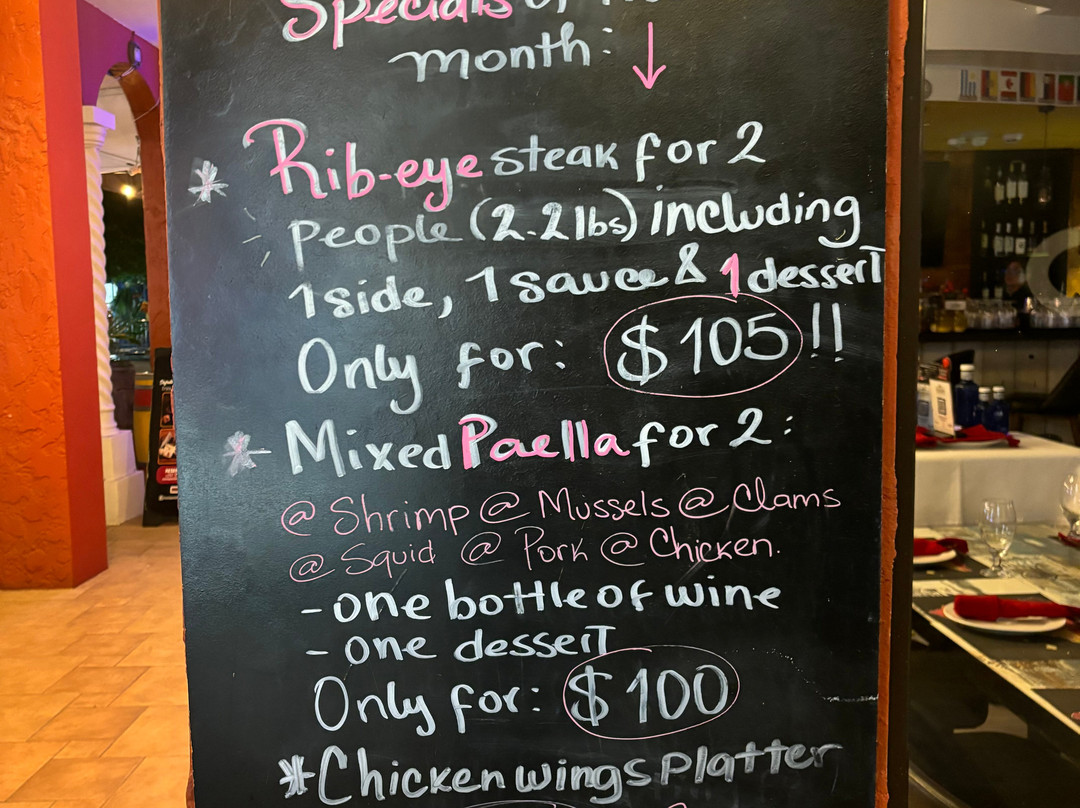 Specials of
month:
* Rib-eye steak for 2
people (2.2 lbs) including
1 side, 1 sauce & 1 dessert
Only for: $105!!
* Mixed Paella for 2:
@ Shrimp @ Mussels @ Clams
@ Squid @ Pork @ Chicken.
- one bottle of wine
- one dessert
Only for: $100
* Chicken wings platter